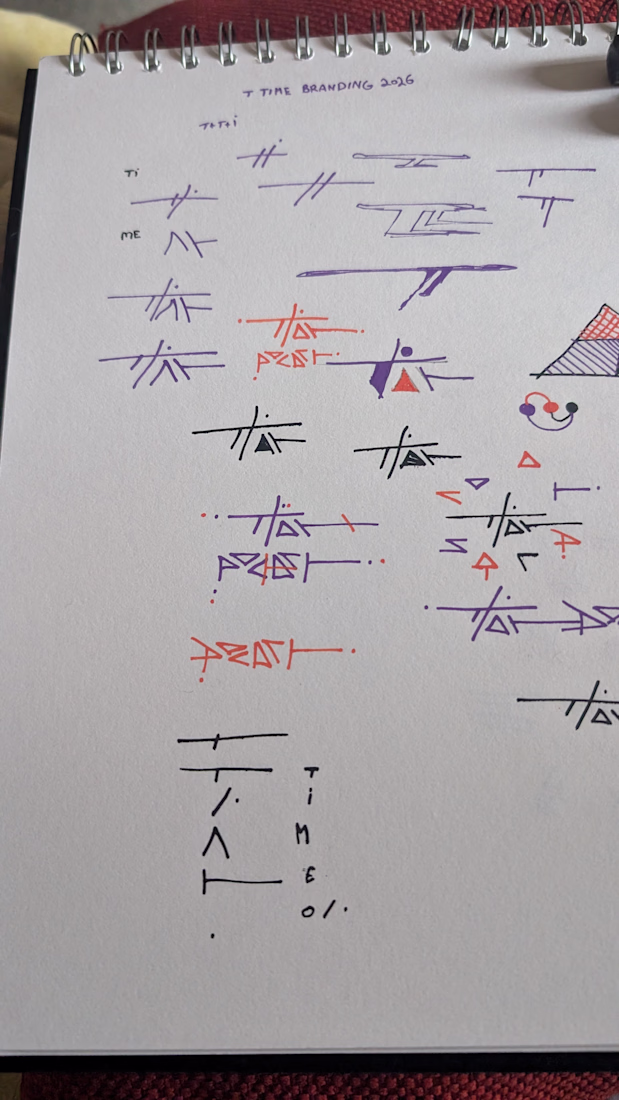 T TIME BRANDING 2026
T+T+i
Ti
ME
T
i
M
E
0/.